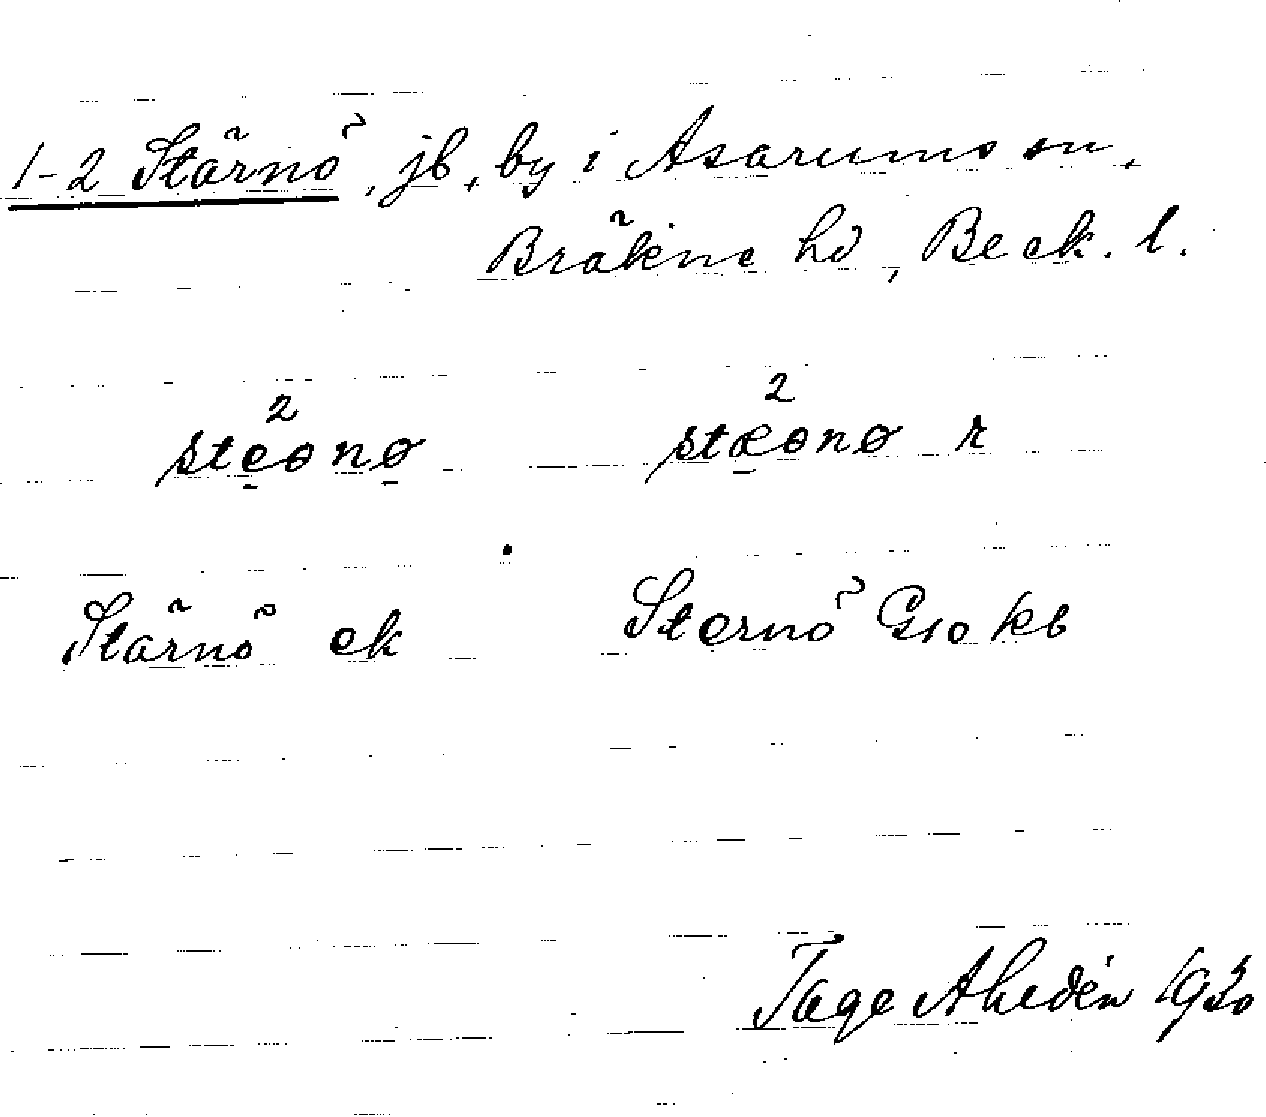 1-2 Stärnö, jb, by i Asarums sn,
Bräkne hd, Bleck. l.
stęɵnø̨ stæ̨ɵnø r
Stärnö ek Sternö Gso kb
Tage Ahldén 1930